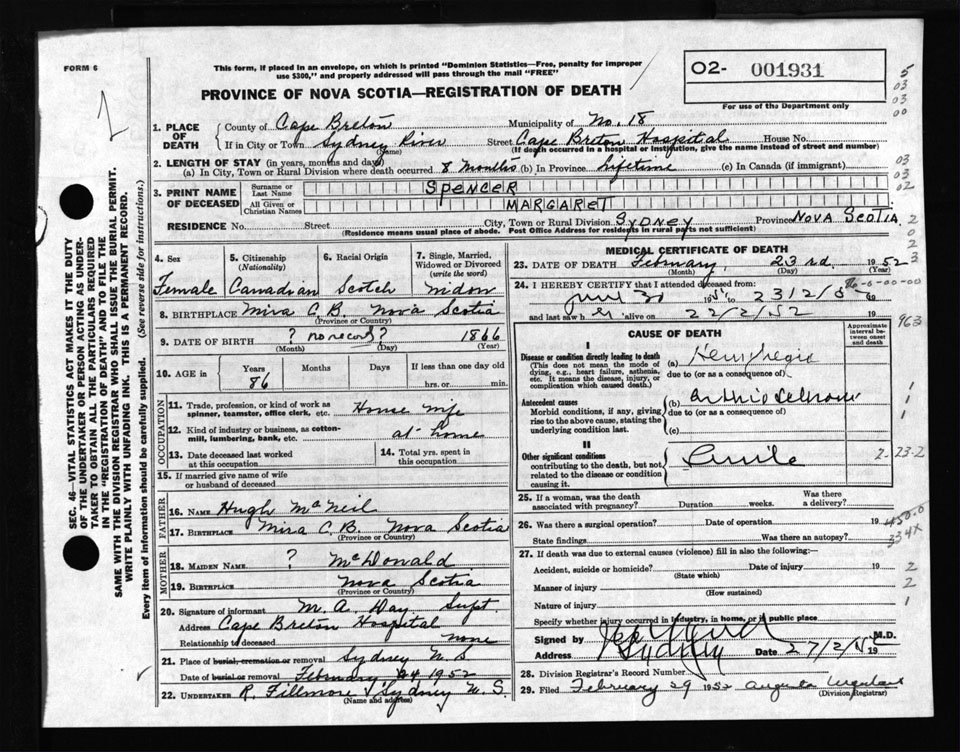 FORM 6
This form, if placed in an envelope, on which is printed "Dominion Statistics—Free, penalty for improper
use $300," and properly addressed will pass through the mail "FREE"
PROVINCE OF NOVA SCOTIA—REGISTRATION OF DEATH
02- 001931
For use of the Department only
5
03
03
00
1. PLACE OF DEATH
County of Cape Breton Municipality of No. 18
If in City or Town Sydney River Street Cape Breton Hospital House No.
(Name) (If death occurred in a hospital or institution, give the name instead of street and number)
2. LENGTH OF STAY (in years, months and days)
(a) In City, Town or Rural Division where death occurred 8 months (b) In Province Lifetime (c) In Canada (if immigrant)
03
03
02
3. PRINT NAME OF DECEASED
Surname or Last Name SPENCER
All Given or Christian Names MARGARET
RESIDENCE No. Street City, Town or Rural Division SYDNEY Province NOVA SCOTIA
(Residence means usual place of abode. Post Office Address for residents in rural parts not sufficient)
2
0
2
3
SEC. 46—VITAL STATISTICS ACT MAKES IT THE DUTY
OF THE UNDERTAKER OR PERSON ACTING AS UNDER-
TAKER TO OBTAIN ALL THE PARTICULARS REQUIRED
IN THE "REGISTRATION OF DEATH" AND TO FILE THE
SAME WITH THE DIVISION REGISTRAR WHO SHALL ISSUE THE BURIAL PERMIT.
WRITE PLAINLY WITH UNFADING INK. THIS IS A PERMANENT RECORD.
Every item of information should be carefully supplied. (See reverse side for instructions.)
4. Sex
Female
5. Citizenship
(Nationality)
Canadian
6. Racial Origin
Scotch
7. Single, Married,
Widowed or Divorced
(write the word)
Widow
8. BIRTHPLACE Mira C.B. Nova Scotia
(Province or Country)
9. DATE OF BIRTH ? no record? 1866
(Month) (Day) (Year)
10. AGE in Years Months Days If less than one day old
86 hrs. or min.
OCCUPATION
11. Trade, profession, or kind of work as
spinner, teamster, office clerk, etc. House wife
12. Kind of industry or business, as cotton-
mill, lumbering, bank, etc. at home
13. Date deceased last worked
at this occupation
14. Total yrs. spent in
this occupation
15. If married give name of wife
or husband of deceased
FATHER
16. NAME Hugh McNeil
17. BIRTHPLACE Mira C.B. Nova Scotia
(Province or Country)
MOTHER
18. MAIDEN NAME ? McDonald
19. BIRTHPLACE Nova Scotia
(Province or Country)
20. Signature of informant M. A. Day Supt.
Address Cape Breton Hospital
Relationship to deceased none
21. Place of burial, cremation or removal Sydney N.S
Date of burial or removal February 24 1952
22. UNDERTAKER R. Fillmore Sydney N.S.
(Name and address)
MEDICAL CERTIFICATE OF DEATH
23. DATE OF DEATH February, 23rd. 1952
(Month) (Day) (Year)
24. I HEREBY CERTIFY that I attended deceased from:
June 30 195 to 23/2/52
and last saw her alive on 22/2/52
963
CAUSE OF DEATH
Approximate
interval be-
tween onset
and death
I
Disease or condition directly leading to death
(This does not mean the mode of
dying, e.g., heart failure, asthenia,
etc. It means the disease, injury, or
complication which caused death.)
(a)
due to (or as a consequence of)
Antecedent causes
Morbid conditions, if any, giving
rise to the above cause, stating the
underlying condition last.
(b)
due to (or as a consequence of)
(c)
1
1
1
II
Other significant conditions
contributing to the death, but not
related to the disease or condition
causing it.
Senile
2-23-2
25. If a woman, was the death
associated with pregnancy? Duration weeks. Was there
a delivery?
26. Was there a surgical operation? Date of operation 19
State findings Was there an autopsy?
450.0
334X
27. If death was due to external causes (violence) fill in also the following:—
Accident, suicide or homicide? Date of injury 19
(State which)
Manner of injury
(How sustained)
Nature of injury
Specify whether injury occurred in industry, in home, or in public place
2
2
1
Signed by M.D.
Address Sydney Date 27/2/5 19
28. Division Registrar's Record Number
29. Filed February 29 1952 Augusta
(Division Registrar)